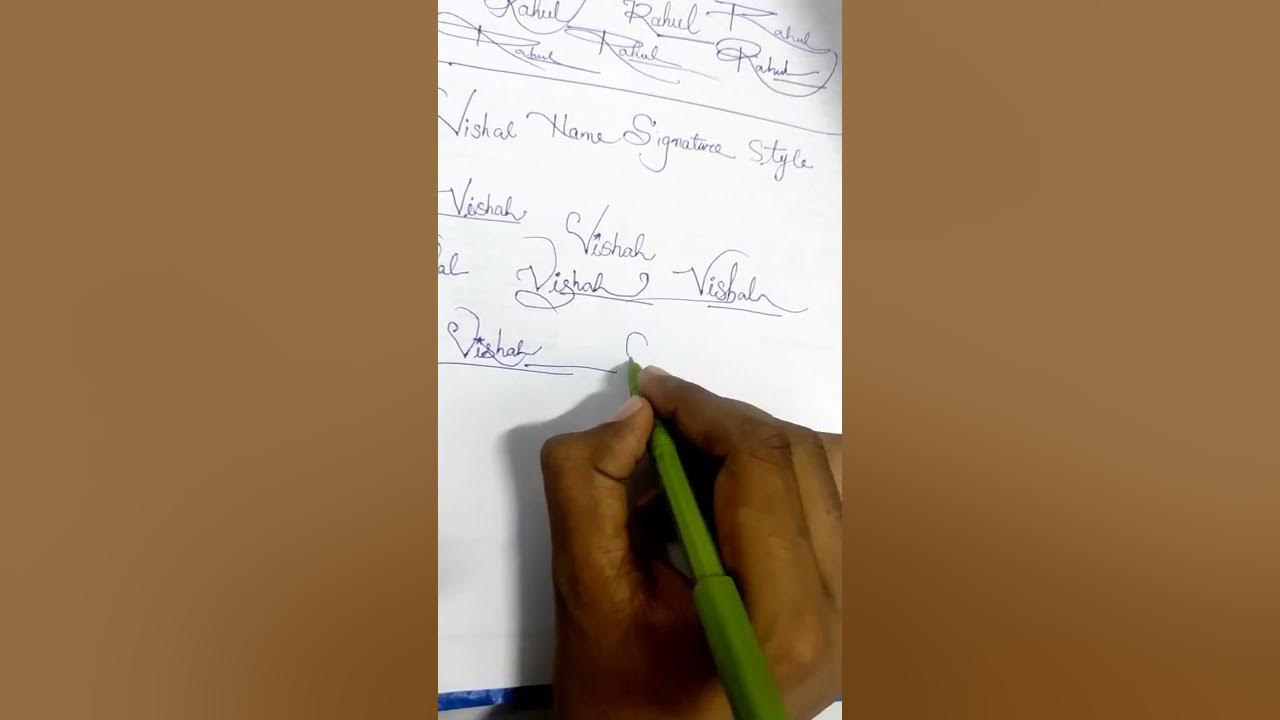 Rahul Rahul Rahul
Rahul Rahul Rahul
Vishal Name Signature Style
Vishal
Vishal
al Vishal Vishal
Vishal